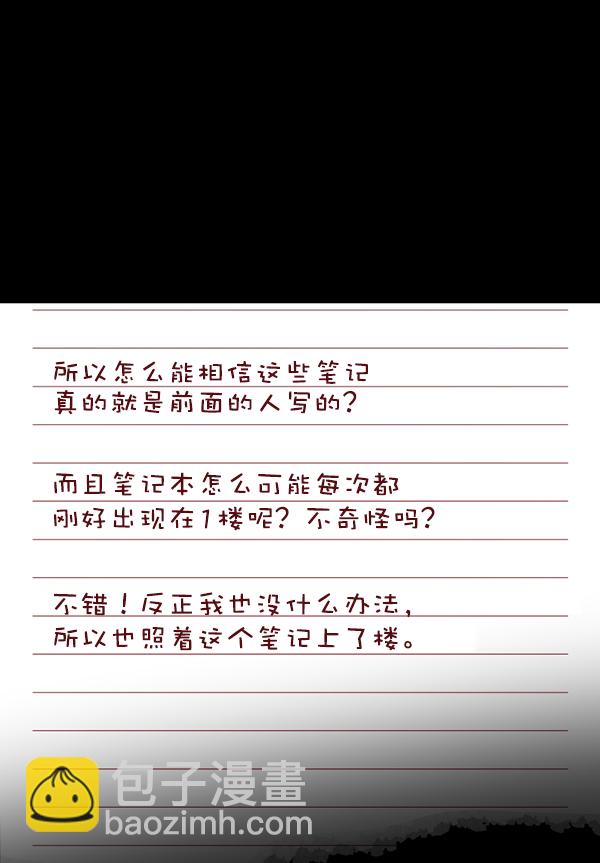 所以怎么能相信这些笔记
真的就是前面的人写的？
而且笔记本怎么可能每次都
刚好出现在1楼呢？不奇怪吗？
不错！反正我也没什么办法，
所以也照着这个笔记上了楼。
包子漫畫
baozimh.com